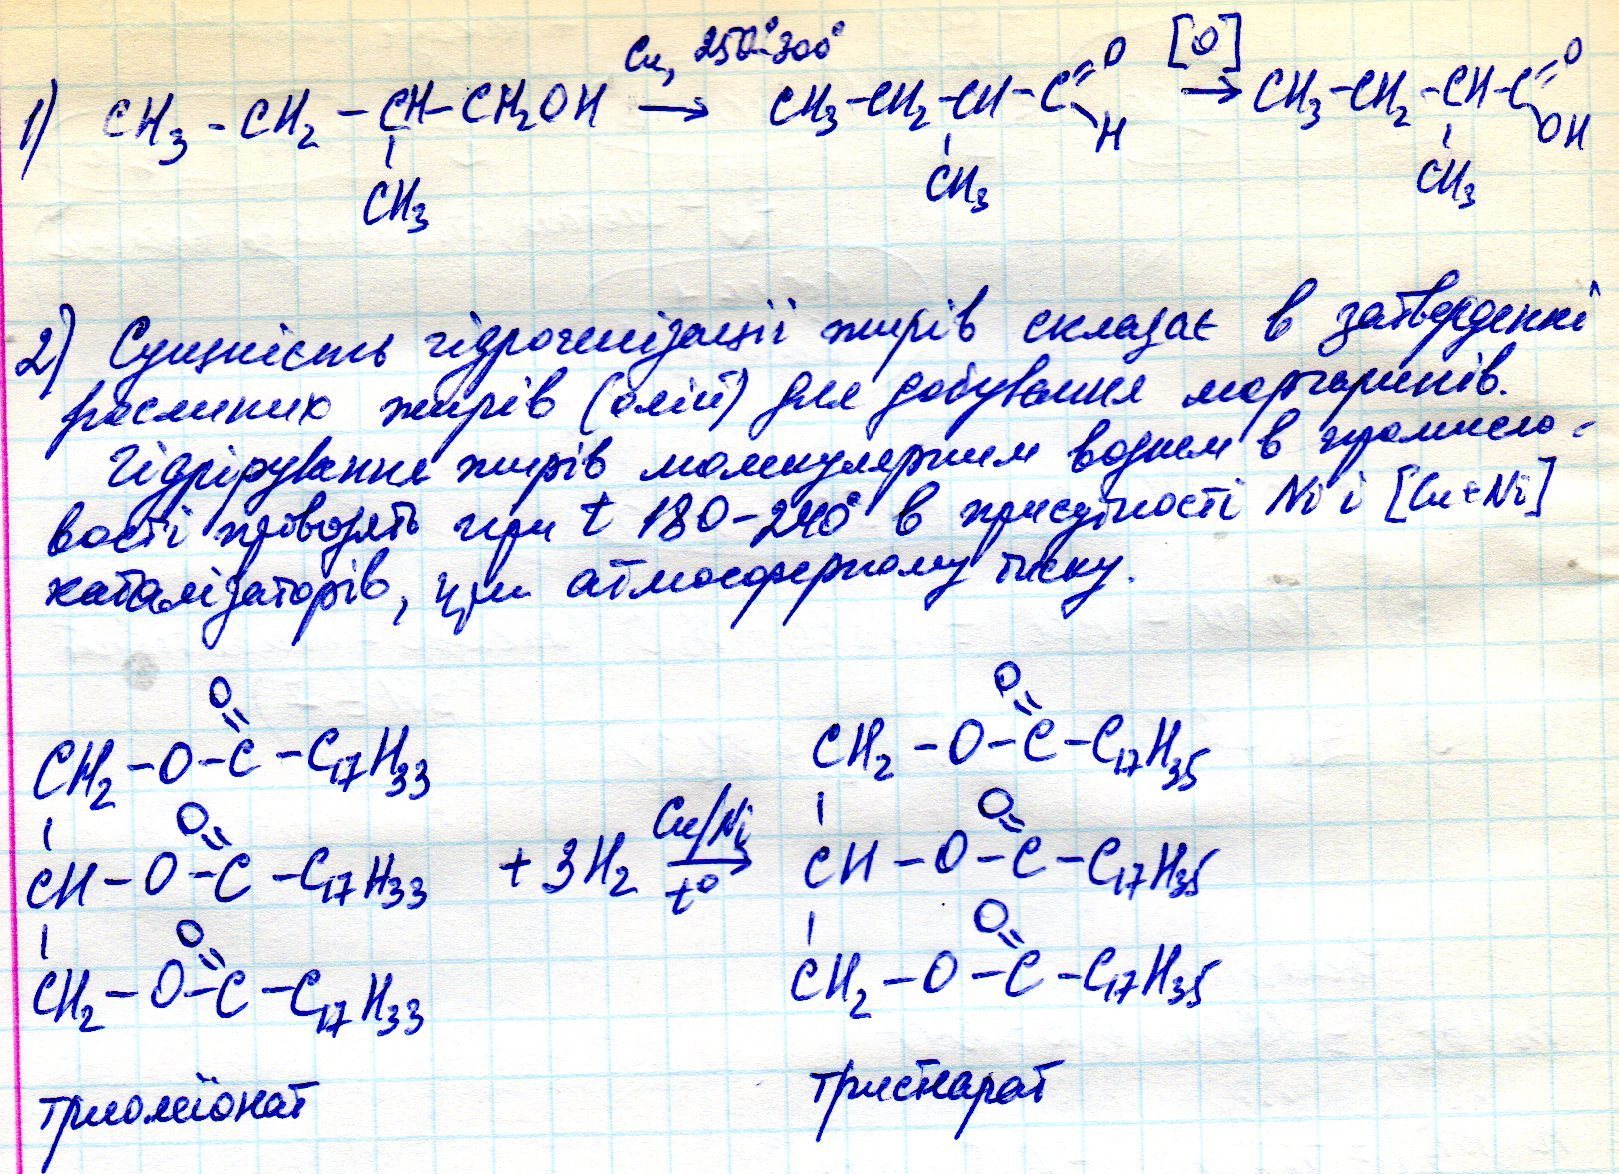 1) CH3 - CH2 - CH - CH2OH Cu, 250°-300° → CH3 - CH2 - CH - C =O H [O] → CH3 - CH2 - CH - C =O OH
CH3 CH3 CH3
2) Сущність гідрогенізації жирів складає в затвердженні
рослиних жирів (олій) для добування маргаринів.
Гідрірування жирів молекулярним воднем в промисло-
вості проводять при t 180-240° в присутності Ni і [Cu+Ni]
каталізаторів, при атмосферному тиску.
CH2 - O - C =O - C17H33 CH2 - O - C =O - C17H35
CH - O - C =O - C17H33 + 3H2 Cu/Ni → t° CH - O - C =O - C17H35
CH2 - O - C =O - C17H33 CH2 - O - C =O - C17H35
триолеїонат тристеарат